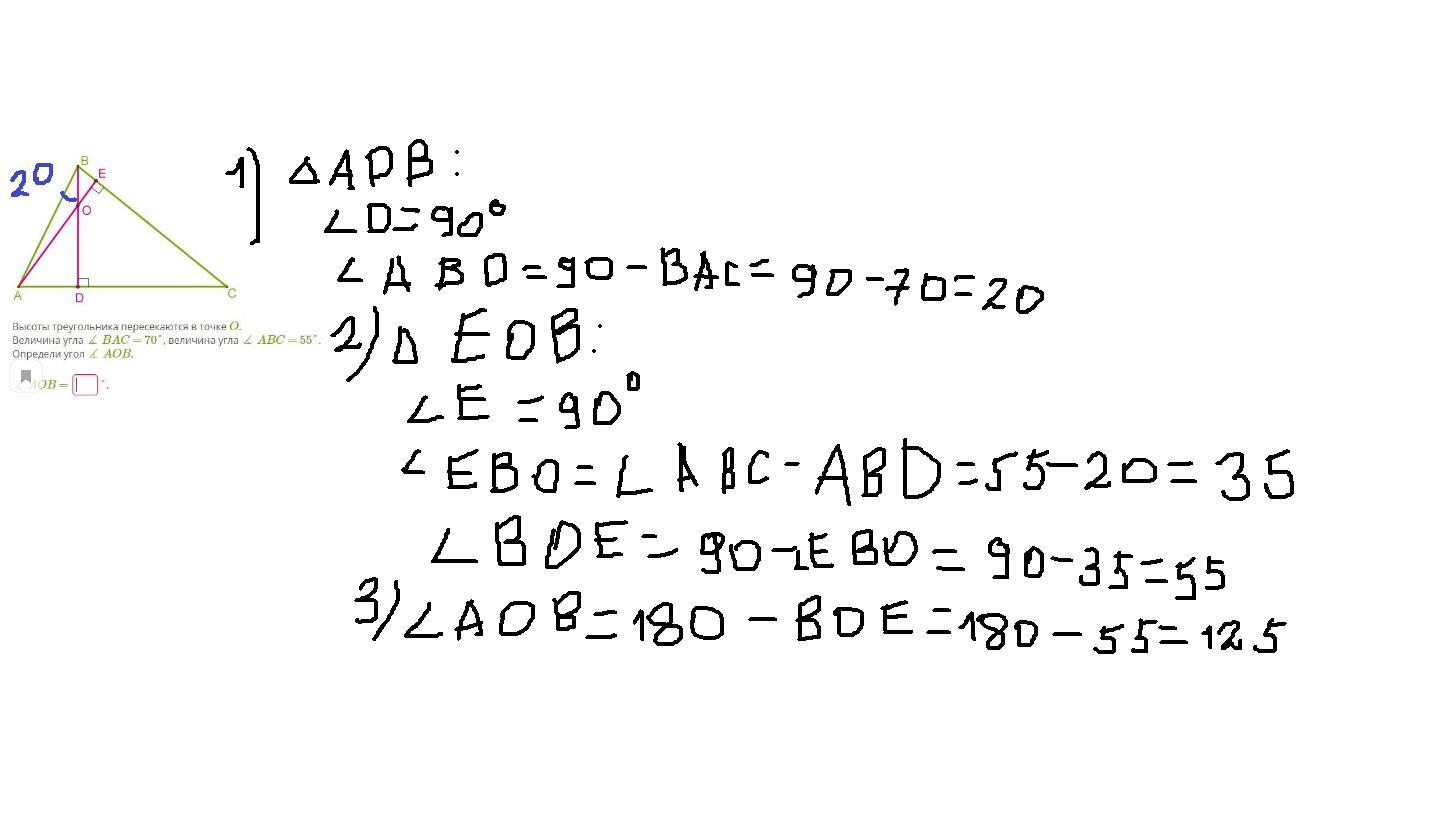 20
B
E
O
A
D
C
Высоты треугольника пересекаются в точке O.
Величина угла ∡ BAC = 70°, величина угла ∡ ABC = 55°.
Определи угол ∡ AOB.
AOB = °.
1) △ADB:
∠D=90°
∠ABO=90-BAC=90-70=20
2) △EOB:
∠E=90°
∠EBO=∠ABC-ABD=55-20=35
∠BOE=90-∠EBO=90-35=55
3) ∠AOB=180-BOE=180-55=125